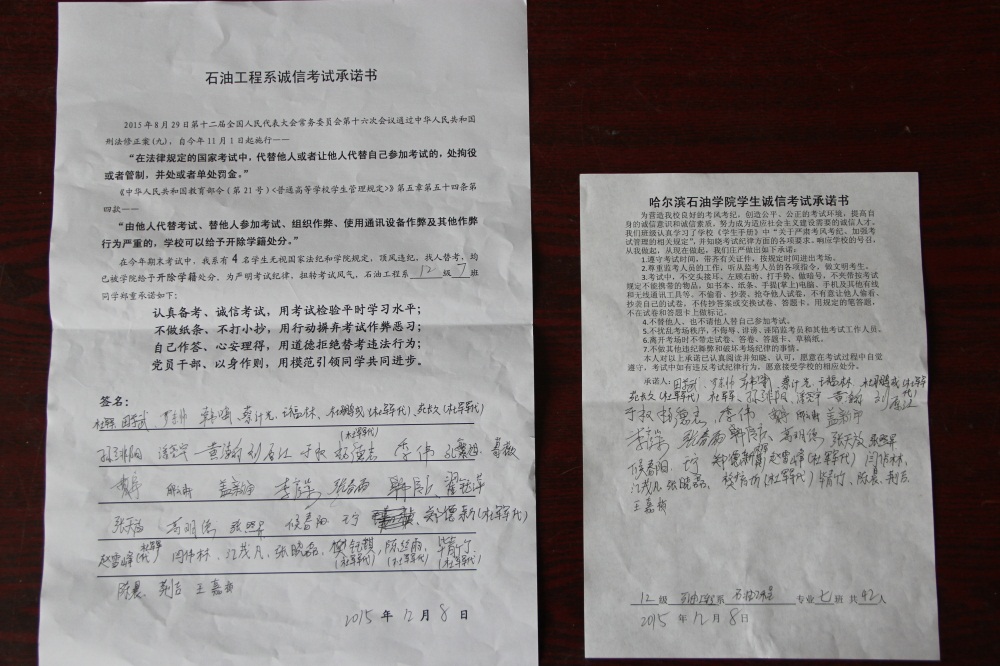 石油工程系诚信考试承诺书
2015年8月29日第十二届全国人民代表大会常务委员会第十六次会议通过中华人民共和国
刑法修正案(九),自今年11月1日起施行——
“在法律规定的国家考试中,代替他人或者让他人代替自己参加考试的,处拘役
或者管制,并处或者单处罚金。”
《中华人民共和国教育部令(第21号)<普通高等学校学生管理规定>》第五章第五十四条第
四款——
“由他人代替考试、替他人参加考试、组织作弊、使用通讯设备作弊及其他作弊
行为严重的,学校可以给予开除学籍处分。”
在今年期末考试中,我系有4名学生无视国家法纪和学院规定,顶风违纪,找人替考,均
已被学院给予开除学籍处分。为严明考试纪律,扭转考试风气,石油工程系12级7班
同学郑重承诺如下:
认真备考、诚信考试,用考试检验平时学习水平;
不做纸条、不打小抄,用行动摒弃考试作弊恶习;
自己作答、心安理得,用道德拒绝替考违法行为;
党员干部、以身作则,用模范引领同学共同进步。
签名:
杜军 田学武 韩啸 蔡计光 杜鹏成(杜军军代)
黄瀚 刘 于权 杨德志(杜军军代) 李伟
盖新宇
张天放 高明儒 侯春阳 王宁 郑德新(杜军军代)
赵雪峰(杜军军代) 闫伟林 江茂凡 张晓磊 (杜军军代) 陈丝雨(杜军军代) (杜军军代)
陈晨 荆吉 王嘉
2015年12月8日
哈尔滨石油学院学生诚信考试承诺书
为营造我校良好的考风考纪,创造公平、公正的考试环境,提高自
身的诚信意识和诚信素质,努力成为适应社会主义建设需要的诚信人才。
我们班级认真学习了学校《学生手册》中“关于严肃考风考纪、加强考
试管理的相关规定”,并知晓考试纪律方面的各项要求。响应学校的号召,
从我做起,从现在做起,我们庄严做出如下承诺:
1.遵守考试时间,带齐有关证件,按规定时间进出考场。
2.尊重监考人员的工作,听从监考人员的各项指令,做文明考生。
3.考试中,不交头接耳、左顾右盼、打手势、做暗号,不夹带按考试
规定不能携带的物品,如书本、纸条、手提(掌上)电脑、手机及其他有线
和无线通讯工具等,不偷看、抄袭、抢夺他人试卷,不有意让他人偷看、
抄袭自己的试卷,不传抄答案或交换试卷、答题卡。用规定的笔答题,
不在试卷和答题卡上做标记。
4.不替他人,也不请他人替自己参加考试。
5.不扰乱考场秩序,不侮辱、诽谤、诬陷监考员和其他考试工作人员。
6.离开考场时不带走试卷、答卷、答题卡、草稿纸。
7.不做其他违纪舞弊和破坏考场纪律的事情。
本人对以上承诺已认真阅读并知晓、认可,愿意在考试过程中自觉
遵守,考试中如有违反考试纪律行为,愿意接受学校的相应处分。
承诺人:田学武 蔡计光 杜鹏成(杜军军代)
杜军 黄瀚 刘
于权 杨德志 李伟 盖新宇
高明儒 张天放
侯春阳 王宁 郑德新 赵雪峰(杜军军代) 闫伟林
江茂凡 张晓磊 (杜军军代) 陈晨 荆吉
王嘉
12级 石油工程系 石油工程 专业七班 共42人
2015年12月8日